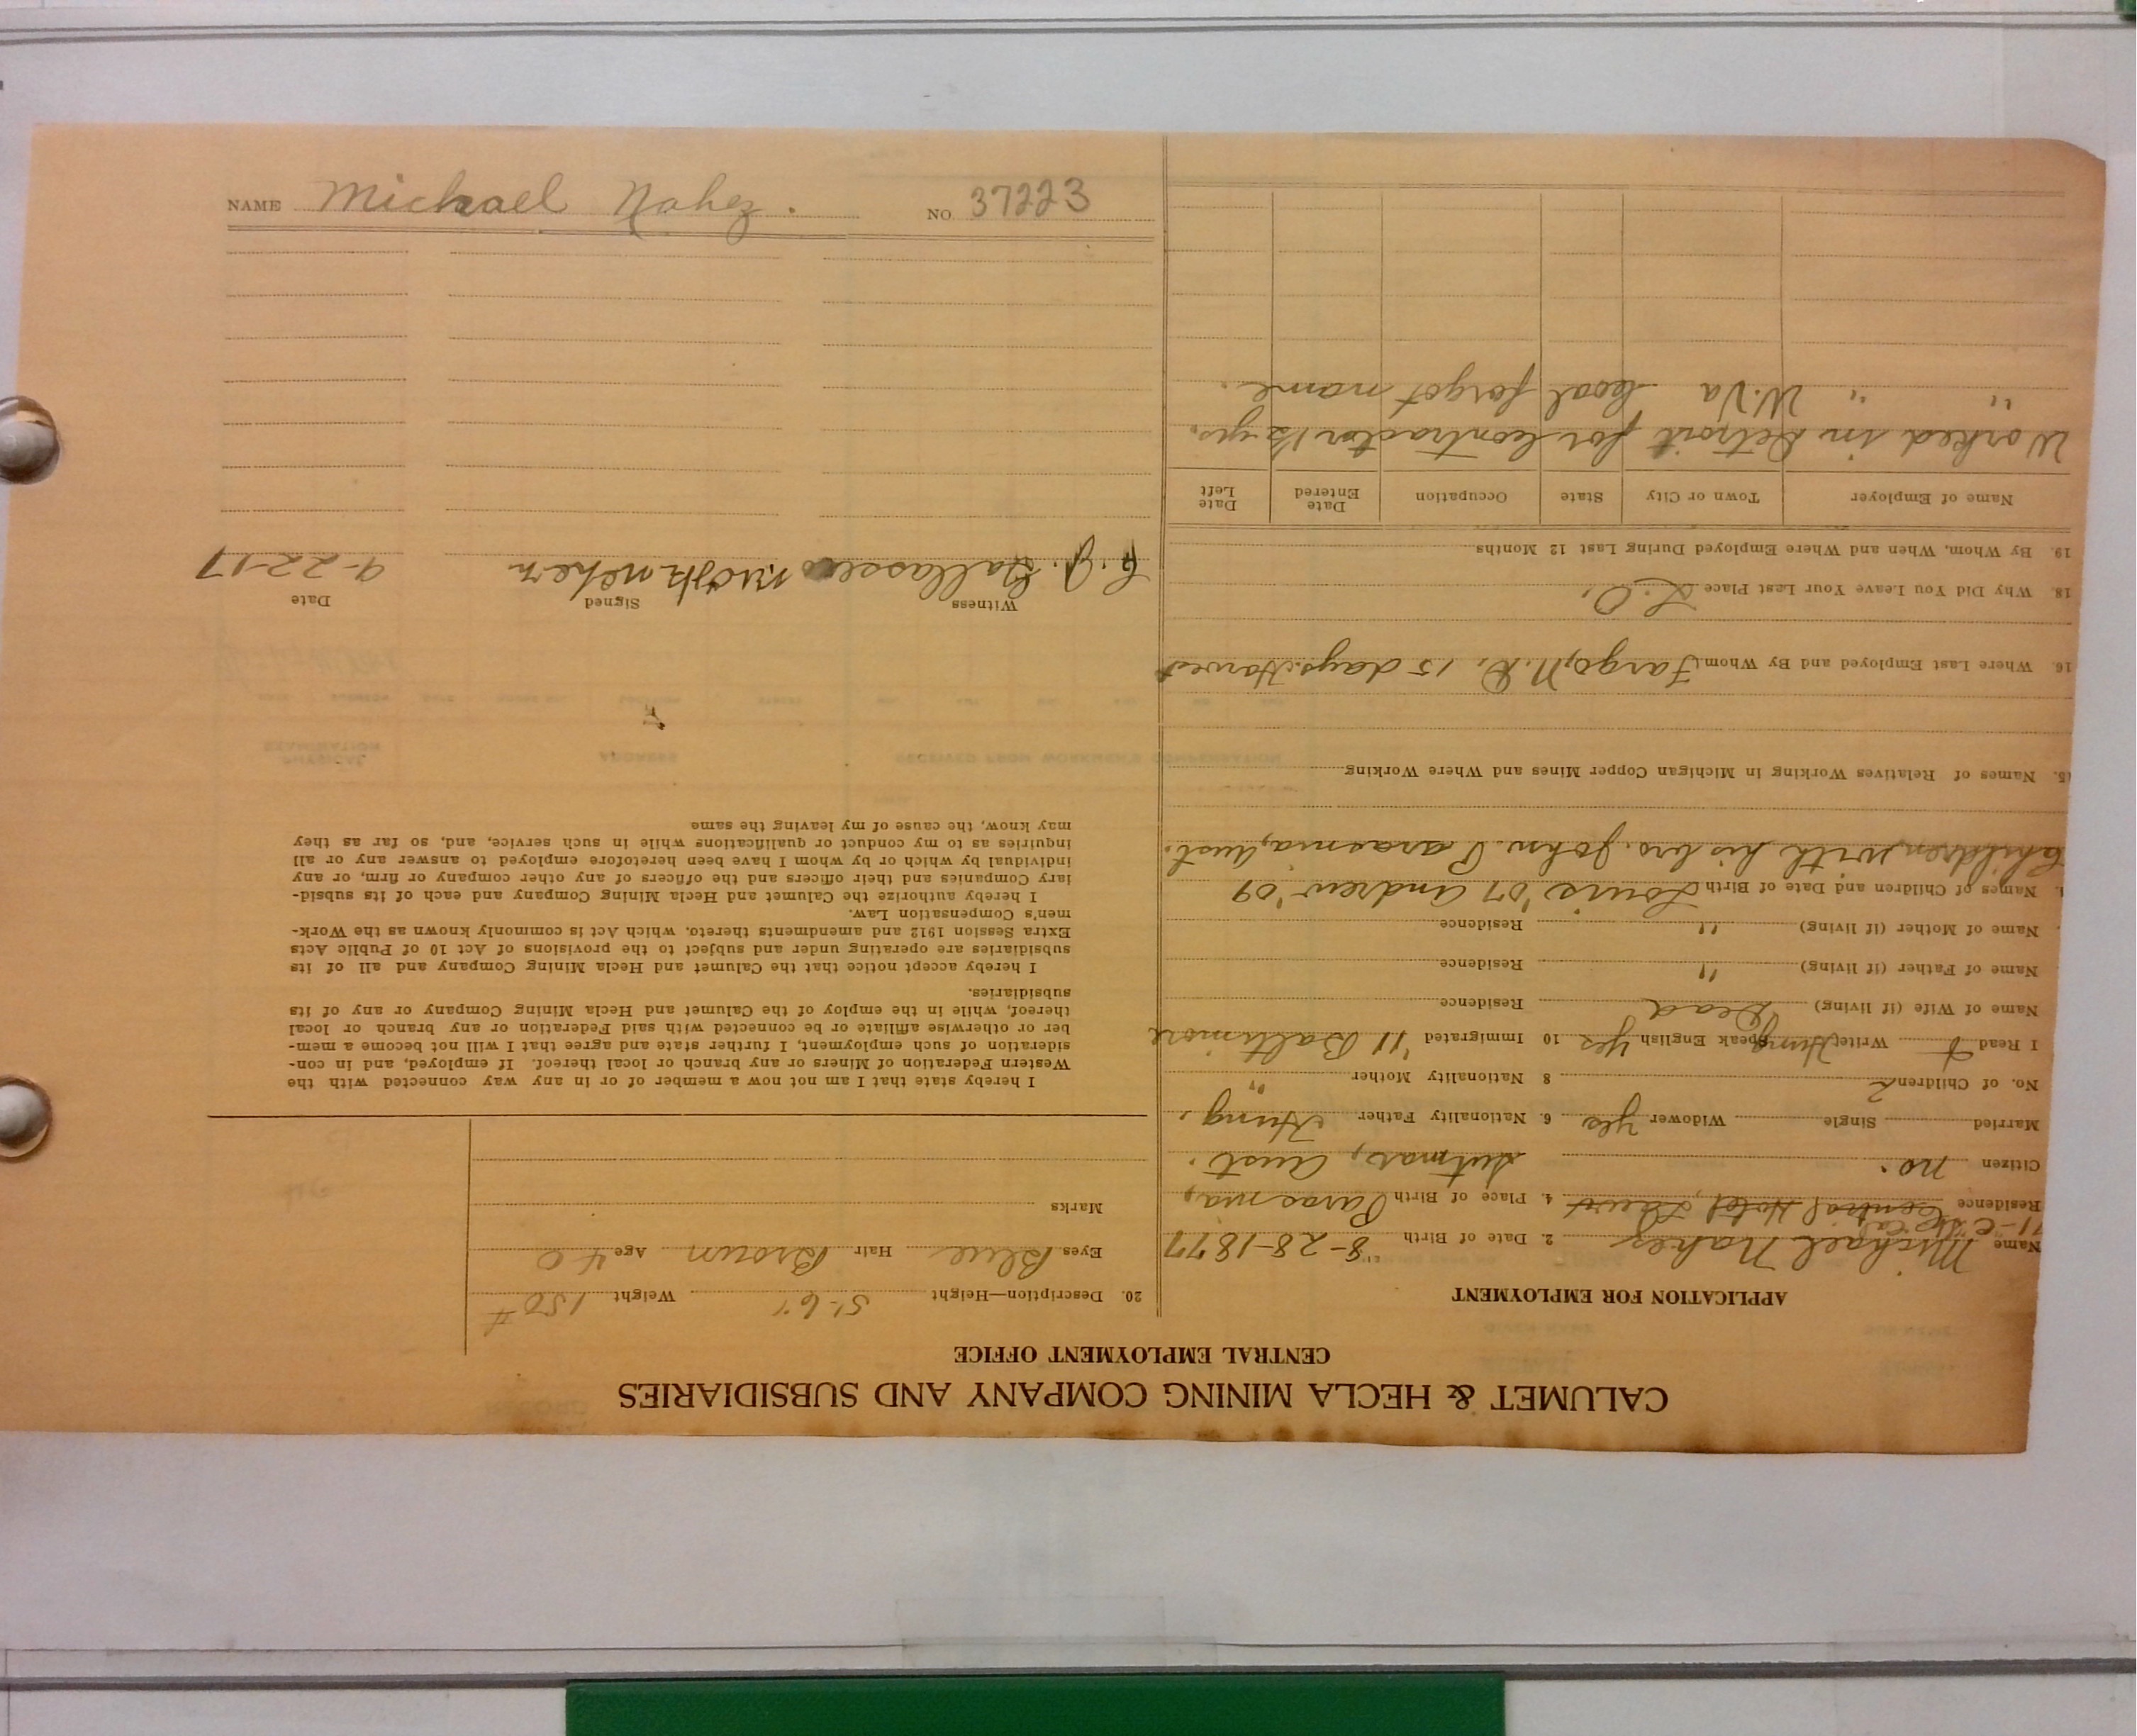 CALUMET & HECLA MINING COMPANY AND SUBSIDIARIES
CENTRAL EMPLOYMENT OFFICE
APPLICATION FOR EMPLOYMENT
Name Michael Nahez 2. Date of Birth 8-28-1877
Residence Central Hotel, 4. Place of Birth Parasnia,
Citizen no. Aust.
Married Single Widower Yes 6. Nationality Father Hung.
No. of Children 2 8 Nationality Mother "
I Read Write Hung Speak English Yes 10 Immigrated '11 Baltimore
Name of Wife (if living) Dead Residence
Name of Father (if living) " Residence
Name of Mother (if living) " Residence
Names of Children and Date of Birth Louis '07 Andrew '09
Children, with his bro. John. Parasnia, Aust.
15. Names of Relatives Working in Michigan Copper Mines and Where Working
16. Where Last Employed and By Whom Fargo, N.D. 15 days. Harvest
18. Why Did You Leave Your Last Place L.O.
19. By Whom, When and Where Employed During Last 12 Months
Name of Employer Town or City State Occupation Date Entered Date Left
Worked in Detroit for Contractor 1/2 yrs.
" " W.Va Coal forgot name.
20. Description—Height 5'-6" Weight 150#
Eyes Blue Hair Brown Age 40
Marks
I hereby state that I am not now a member of or in any way connected with the
Western Federation of Miners or any branch or local thereof. If employed, and in con-
sideration of such employment, I further state and agree that I will not become a mem-
ber or otherwise affiliate or be connected with said Federation or any branch or local
thereof, while in the employ of the Calumet and Hecla Mining Company or any of its
subsidiaries.
I hereby accept notice that the Calumet and Hecla Mining Company and all of its
subsidiaries are operating under and subject to the provisions of Act 10 of Public Acts
Extra Session 1912 and amendments thereto. which Act is commonly known as the Work-
men's Compensation Law.
I hereby authorize the Calumet and Hecla Mining Company and each of its subsid-
iary Companies and their officers and the officers of any other company or firm, or any
individual by which or by whom I have been heretofore employed to answer any or all
inquiries as to my conduct or qualifications while in such service, and, so far as they
may know, the cause of my leaving the same
Witness Signed Date
9-22-17
NAME Michael Nahez. NO 37223